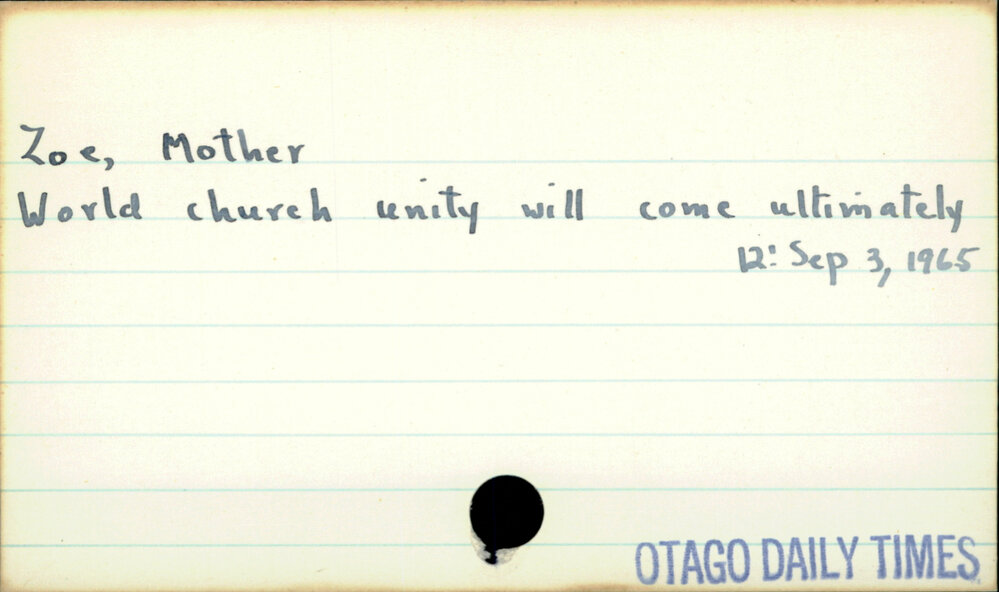 Zoe, Mother
World church unity will come ultimately
12: Sep 3, 1965
OTAGO DAILY TIMES